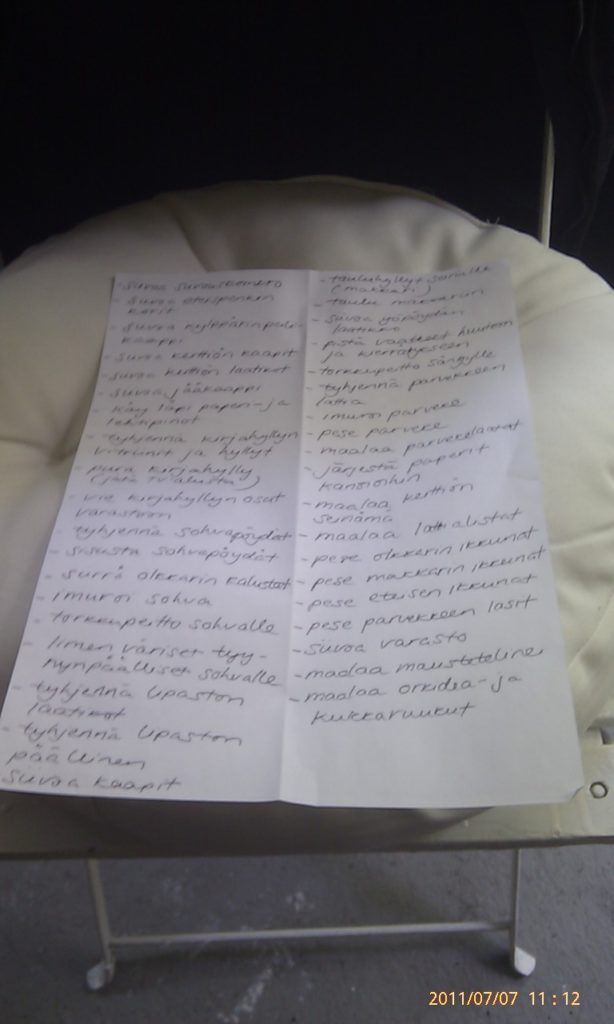 - siivoa siivouskomero
- siivoa eteispenkin
korit
- siivoa kylppärin peili-
kaappi
- siivoa keittiön kaapit
- siivoa keittiön laatikot
- siivoa jääkaappi
- käy läpi paperi- ja
lehtipinot
- tyhjennä kirjahyllyn
vitriinit ja hyllyt
- pura kirjahylly
(jätä TV alusta)
- vie kirjahyllyn osat
varastoon
- tyhjennä sohvapöydät
- sisusta sohvapöydät
- siirrä olkkarin kalusteet
- imuroi sohva
- torkkupeitto sohvalle
- limen väriset tyy-
nynpäälliset sohvalle
- tyhjennä lipaston
laatikot
- tyhjennä lipaston
päällinen
siivoa kaapit
- tauluhyllyt seinälle
(makkari)
- taulu makkariin
- siivoa yöpöydän
laatikko
- pistä vaatteet huutoon
ja kierrätykseen
- torkkupeitto sängylle
- tyhjennä parvekkeen
lattia
- imuroi parveke
- pese parveke
- maalaa parvekelaatat
- järjestä paperit
kansioihin
- maalaa keittiön
seinämä
- maalaa lattialistat
- pese olkkarin ikkunat
- pese makkarin ikkunat
- pese eteisen ikkunat
- pese parvekkeen lasit
- siivoa varasto
- maalaa mausteteline
- maalaa orkidea- ja
kukkaruukut
2011/07/07 11:12